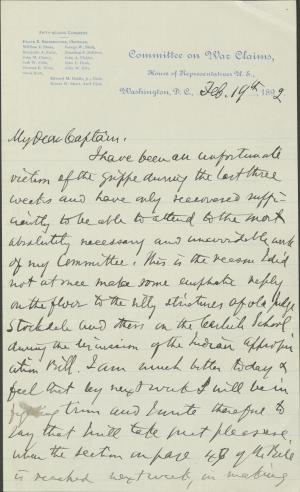 FIFTY-SECOND CONGRESS
Committee on War Claims,
House of Representatives U. S.,
Washington, D. C., Feb. 19th, 1892
My Dear Captain.
I have been an unfortunate
victim of the grippe during the last three
weeks and have only recovered suffi-
ciently to be able to attend to the most
absolutely necessary and unavoidable work
of my Committee. This is the reason I did
not at once make some emphatic reply
on the floor to the silly strictures of old Judge
Stockdale and others on the Carlisle School
during the discussion of the Indian Appropri-
ation Bill. I am much better today &
feel that by next week I will be in
fighting trim and I write therefore to
say that I will take great pleasure,
when the section on page 48 of the Bill
is reached next week, in making